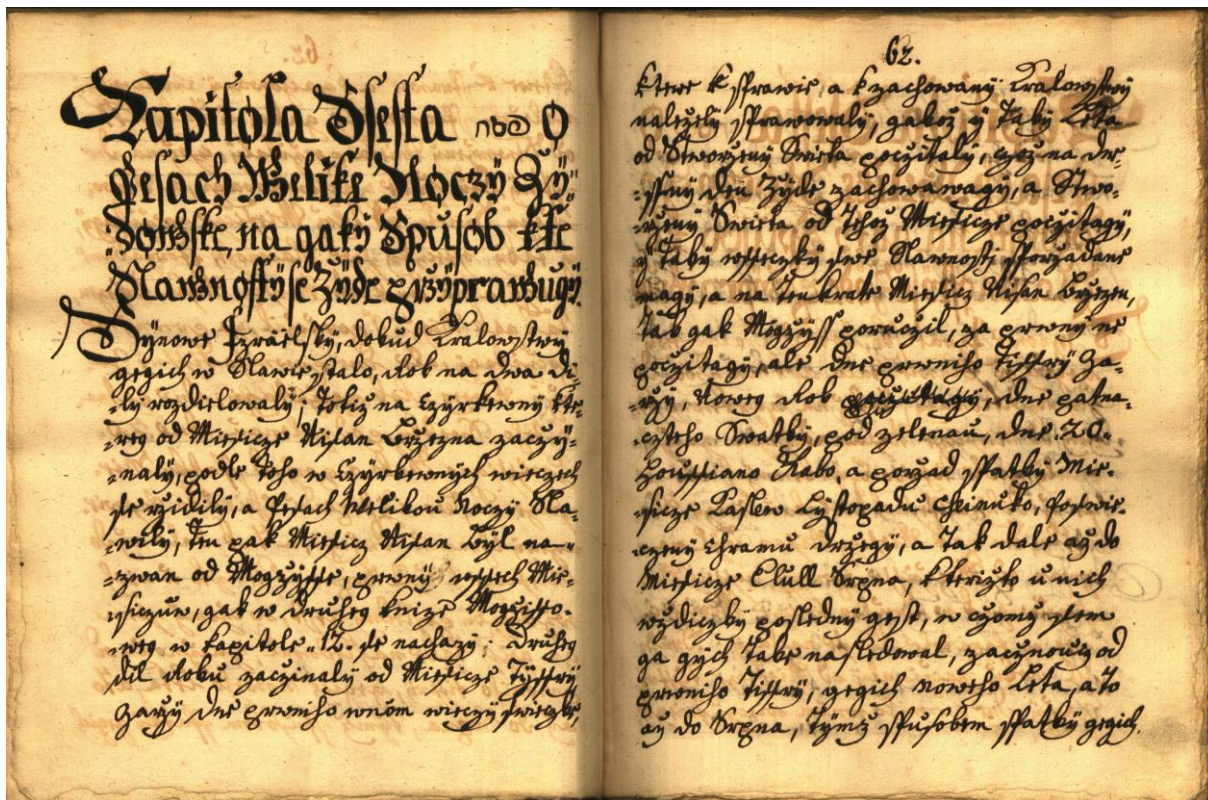 Kapitola Ssesta פסח O
Pesach Welike Noczy Zy-
dowske, na gaky Spusob kte
Slawnosty se Zyde przyprawugy.
Synowe Izraelsky, dokud Kralowstwy
gegich w Slawie stalo, Rok na dwa di-
ly rozdielowaly; Totiz na Czyrkewny kte-
reg od Miesicze Nisan Brzezna zaczy-
naly, podle toho w Czyrkewnych wieczech
se rzidily, a Pesach Welikou Noczy Sla-
wily, Ten pak Miesicz Nisan Byl na-
zwan od Mogzysse, prwny wssech Mie-
siczuw, gak w druheg knize Mogzisso-
weg w kapitole 12. se nachazy; Druheg
dil Roku zaczinaly od Miesicze Tyssry
Zarzy dne prwniho wnom wieczy swieczke,
62.
ktere k sprawie, a k zachowany Kralowstwy
nalezely sprawowaly, gakoz y Taky Leta
od Stworzeny Swieta poczitaly, czoz na dne-
ssny den Zyde zachowawagy, a Stwo-
rzeny Swieta od Tehoz Miesicze poczitagy,
y Taky wsseczky swe Slawnosti sporzadane
magy, a na Tenkrate Miesicz Nisan Brzezen,
tak gak Mogzyss poruczil, za prwny ne
poczitagy, ale dne prwniho Tissry Za-
rzy, Noweg Rok poczitagy, dne patna-
czteho Swatky, pod zelenau, dne 20.
Houssiano Rabo, a porzad spatky Mie-
sicze Kaslew Lystopadu Cheinuko, Poswie-
czeny Chramu drzegy, a tak dale az do
Miesicze Elull Srpna, kterizto u nich
wzdiczky posledny gest, w czomz sem
ga gich take nasledowal, zacznoucz od
prwniho Tissry, gegich noweho Leta, a to
az do Srpna, Tymz spusobem spatky gegich.